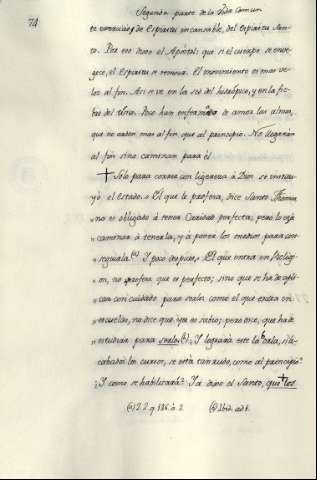 74
Segunda parte de la Vida Comun
te renovacion, de Espiritu incansable, del Espiritu San-
to. Por eso dixo el Apostol: que si el cuerpo se enve-
gece, el Espiritu se renueva. El movimiento es mas ve-
loz al fin. Asi se ve en la sed del hidropico, y en la fie-
bre del
Poco han enfermado de amor las almas,
que no anden mas al fin, que al principio. No llegarán
al fin sino caminan para él.
✝ Solo para correr con ligereza à Dios se instituyó
el estado. » El que le profesa, dice Santo Thomas
» no es obligado à tener Caridad perfecta; pero lo es à
» caminar à tenerla, y à poner los medios para con-
» seguirla.(a) Y poco despues, » El que entra en Religi-
» on, no profesa que es perfecto; sino que se ha de apli-
» car con cuidado para serlo: como el que entra en
» escuelas, no dice que ya es sabio; pero cree, que ha de
» estudiar para serlo.(b) ¿Y lograría este la borla, si a-
cabados los cursos, se está tan rudo, como al principio?
¿Y como se habilitará? Ya dixo el Santo, que los
(a) 2.2. q. 186. a. 2. (b) Ibid. ad 1.